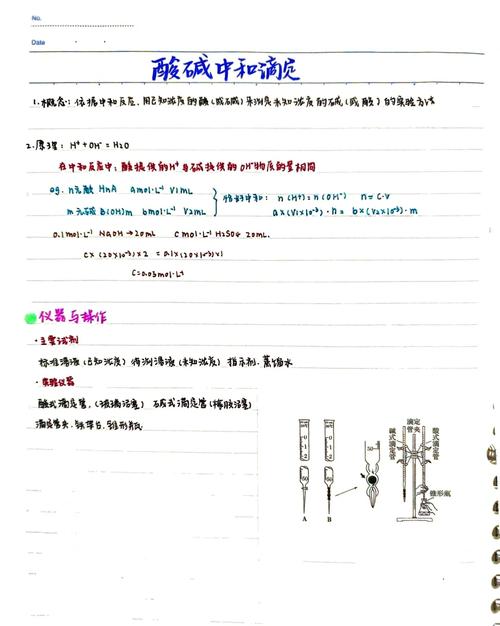 No.
Date
酸碱中和滴定
1.概念:依据中和反应,用已知浓度的酸(或碱)来测定未知浓度的碱(或酸)的实验方法
2.原理:H⁺+OH⁻=H₂O
在中和反应中:酸提供的H⁺与碱提供的OH⁻物质的量相同
eg. n元酸 HnA amol·L⁻¹ V1mL
m元碱 B(OH)m bmol·L⁻¹ V2mL
恰好中和: n(H⁺)=n(OH⁻) n=C·V
a×(V1×10⁻³)·n=b×(V2×10⁻³)·m
0.1mol·L⁻¹ NaOH→20mL Cmol·L⁻¹ H₂SO₄ 20mL.
C×(20×10⁻³)×2=0.1×(20×10⁻³)×1
C=0.05mol·L⁻¹
仪器与操作
·主要试剂
标准溶液(已知浓度) 待测溶液(未知浓度) 指示剂.蒸馏水
·实验仪器
酸式滴定管.(玻璃活塞) 碱式滴定管(橡胶活塞)
滴定管夹.铁架台.锥形瓶
0
1
2
50
A
0
1
2
50
B
50
碱式滴定管
滴定管夹
酸式滴定管
锥形瓶